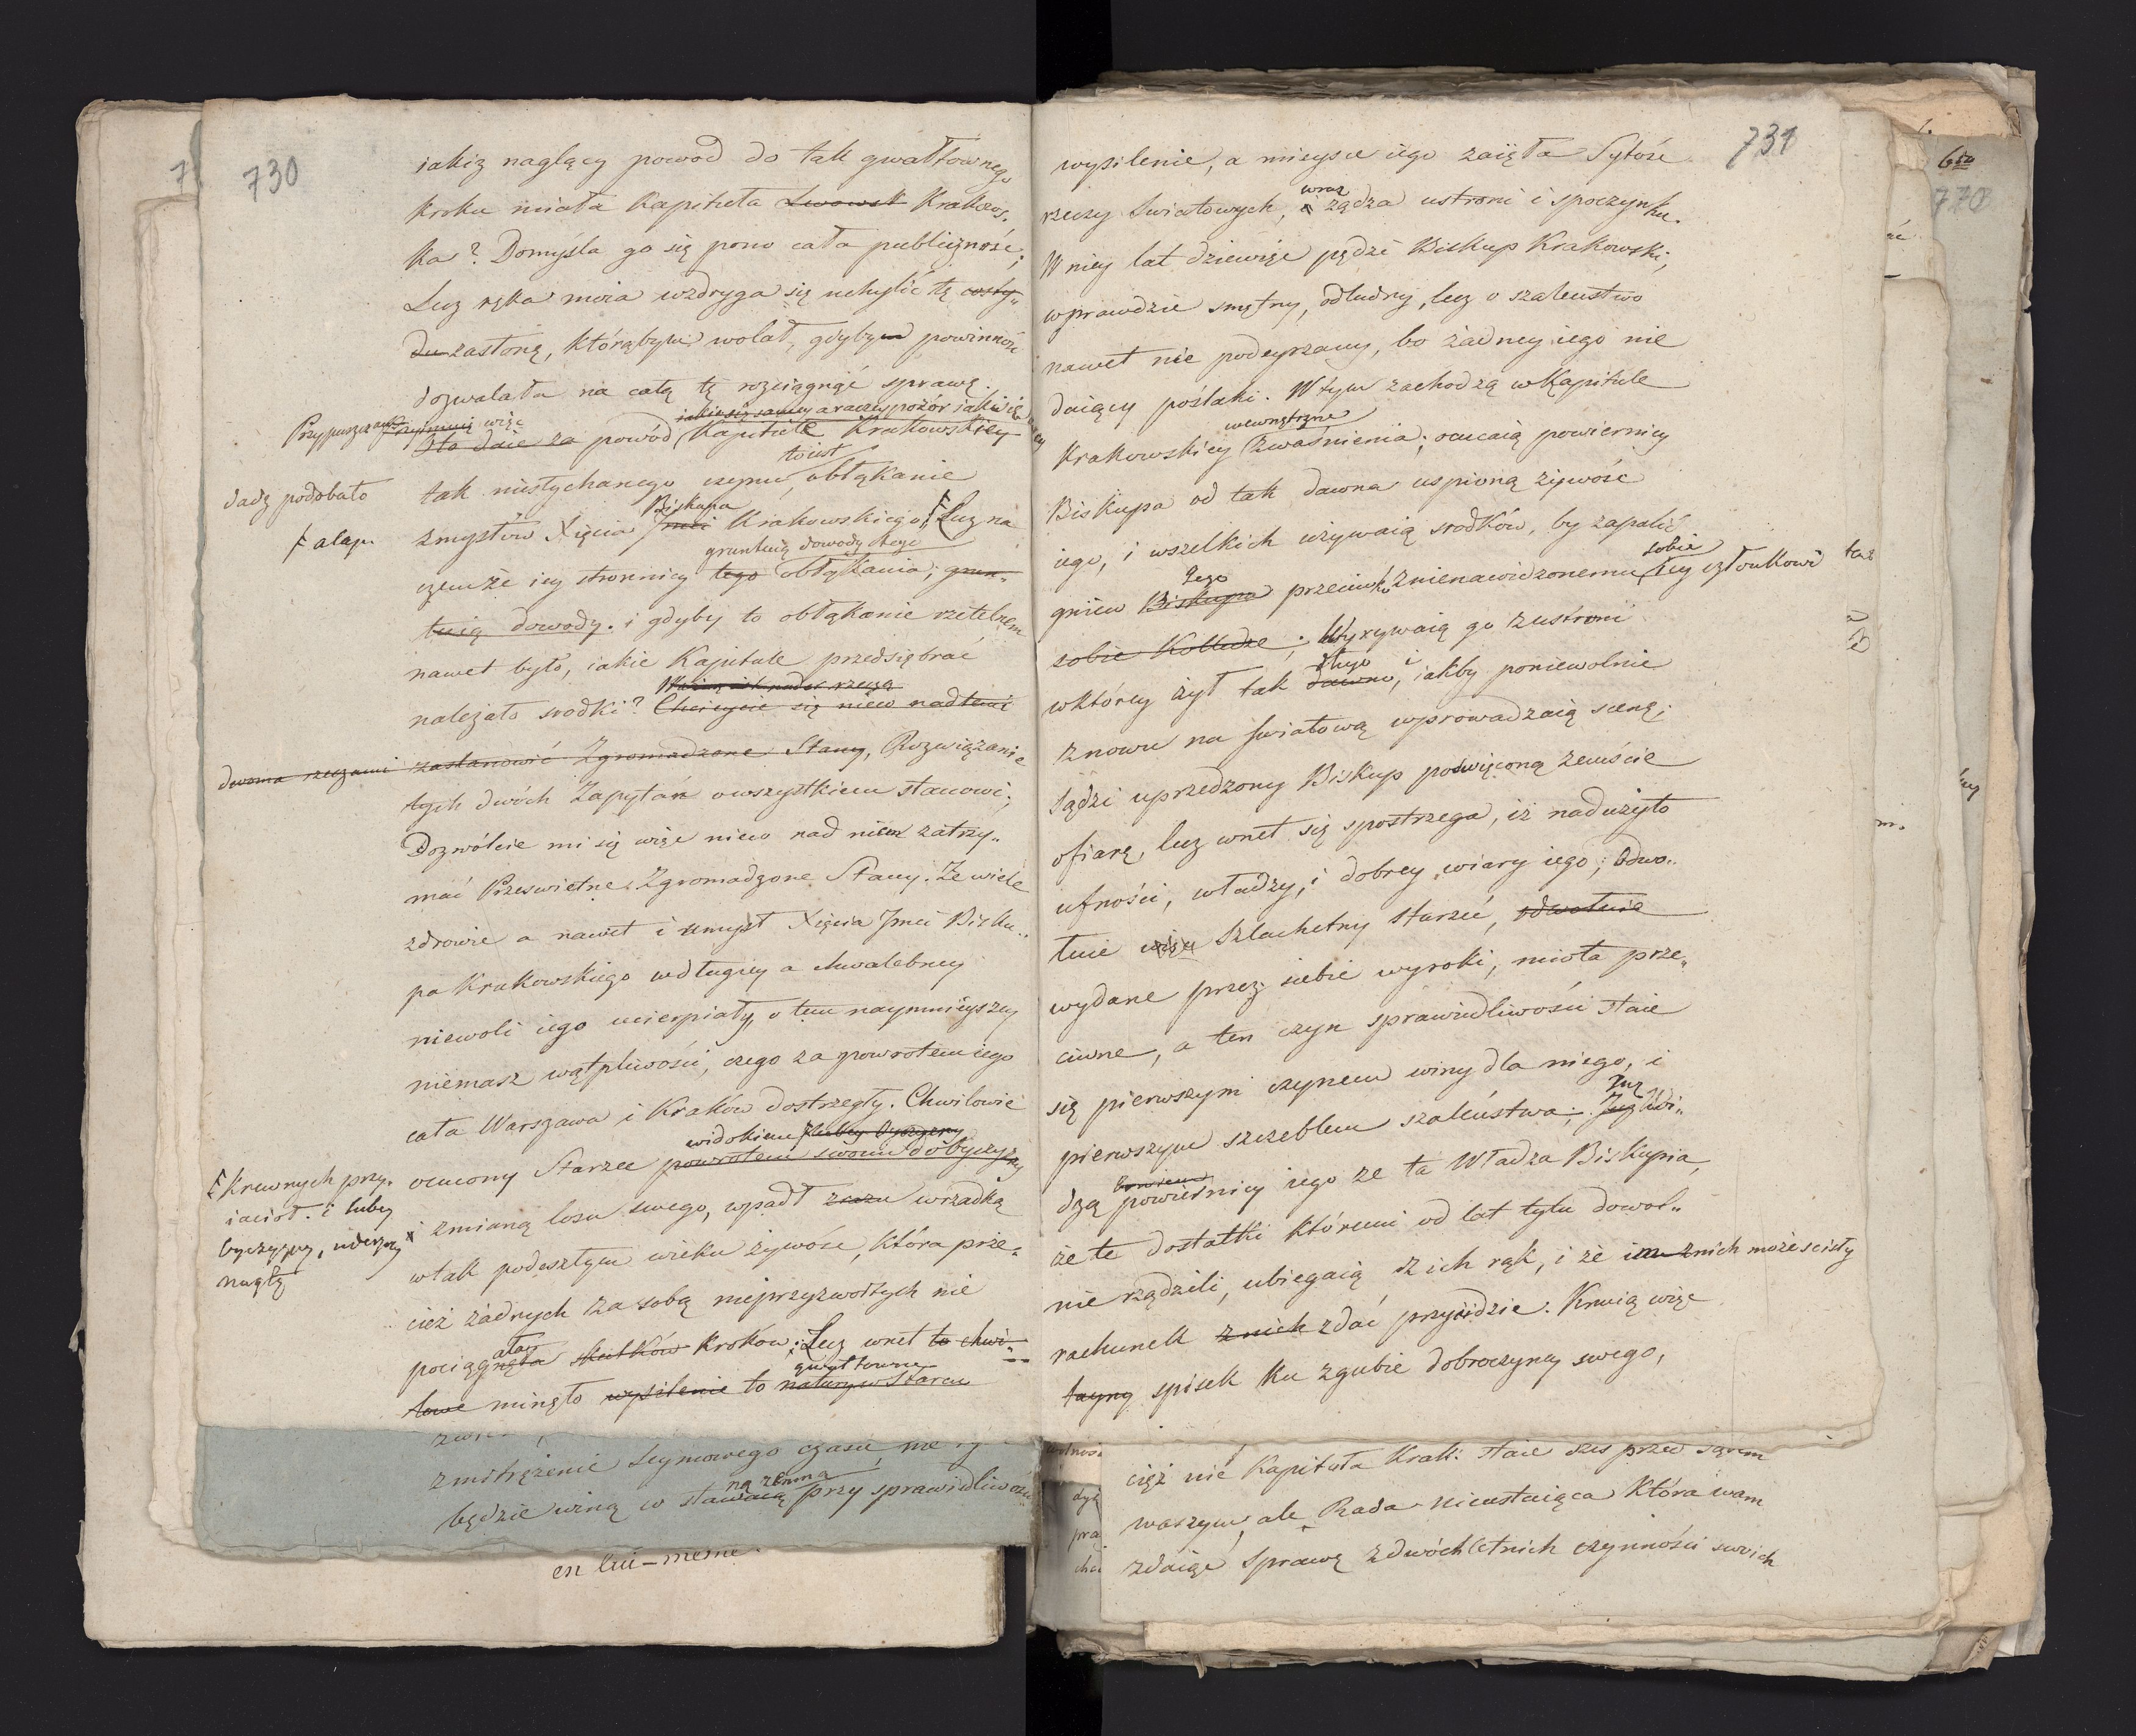 730
iakiż naglący powod do tak gwałtownego
kroku miała Kapituła Lwowsk Krakows-
ka? Domyśla go się pono cała publiczność;
Lecz ręka moia wzdryga się uchylić tę wsty„
du zasłonę, którąbym wolał, gdybym powinność
dozwalała na całą tę rozciągnąć sprawę.
więc
Sto daie za powód Kapitule Krakowskiey
to iest
dadź podobało tak niesłychanego czynu, obłąkanie
Biskupa
zmysłów Xięcia Jmci Krakowskiego; Lecz na
gruntuią dowody chęć
czemże iey stronnicy tego obłąkania; grun„
tuią dowody. i gdyby to obłąkanie rzetelnem
nawet było, iakie Kapitule przedsiębrać
należało srodki? Chcieycie się nieco nad temi
dwoma rzeczami zastanowić Zgromadzone Stany, Rozwiązanie
tych dwóch Zapytań o wszystkiem stanowi;
Dozwólcie mi się więc nieco nad niem zatrzy„
mać Prześwietne Zgromadzone Stany. Ze wiele
zdrowie a nawet i umysł Xięcia Jmci Bisku„
pa Krakowskiego w długiey a chwalebney
niewoli iego ucierpiały, o tem naymnieyszey
niemasz wątpliwości, czego za powrotem iego
cała Warszawa i Kraków dostrzegły. Chwilowie
widokiem lubey Oyczyzny
ocucony Starzec powrotem swoim do Oyczyzny
Krewnych przy-
iaciół. i lubey
Oyczyzny, uderzony
nagłą
i zmianą losu swego, wpadł zrazu w rzadką
w tak podeszłym wieku żywość, która prze„
cież żadnych za sobą nieprzyzwoitych nie
pociągnęła skutków kroków; Lecz wnet to chwi„
gwałtowne
lowe minęło wysilenie to natury w Starcu
zmitrężenie Seymowego czasu, nie
na zemną
będzie winą w stawaiącą przy sprawiedliwości
en lui-meme.
731
wysilenie, a mieysce iego zaięła Sytość
wraz
rzeczy Swiatowych, i żądza ustroni i spoczynku.
W niey lat dziewięć pędzi Biskup Krakowski,
wprawdzie smętny, odludny, lecz o szaleństwo
nawet nie podeyrzany, bo żadney iego nie
daiący poślaki. W tym zachodzą w Kapitule
wewnętrzne
Krakowskiey Zwaśnienia; ocucaią powiernicy
Biskupa od tak dawna uspioną żywość
iego, i wszelkich używaią srodków, by zapalić
Jego sobie
gniew Biskupa przeciwko znienawidzonemu iey członkowi
sobie Kolledze; Wyrywaią go z ustroni
długo i
w którey żył tak dawno, iakby poniewolnie
znowu na swiatową wprowadzaią scenę;
Sądzi uprzedzony Biskup poświęconą zemście
ofiarę, lecz wnet się spostrzega, iż nadużyto
ufności, władzy, i dobrey wiary iego; Odwo„
łuie więc Szlachetny Starzec, odwołuie
wydane przez siebie wyroki, miota prze„
ciwne, a ten czyn sprawiedliwości staie
się pierwszym czynem winy dla niego, i
Już
pierwszym szczeblem szaleństwa; Już Wi„
bowiem
dzą powiernicy iego że ta Władza Biskupia,
że te dostatki któremi od lat tylu dowol„
nie rządzili, ubiegaią z ich rąk, i że im z nich może scisły
rachunek z nich zdać przyidzie. Knuią więc
tayny spisek ku zgubie dobroczyńcy swego,
cięż nie Kapituła Krak: staie dzis przed sądem
waszym, ale Rada nieustaiąca która wam
zdaiąc Sprawę z dwóchletnich czynności swoich
6ta
770